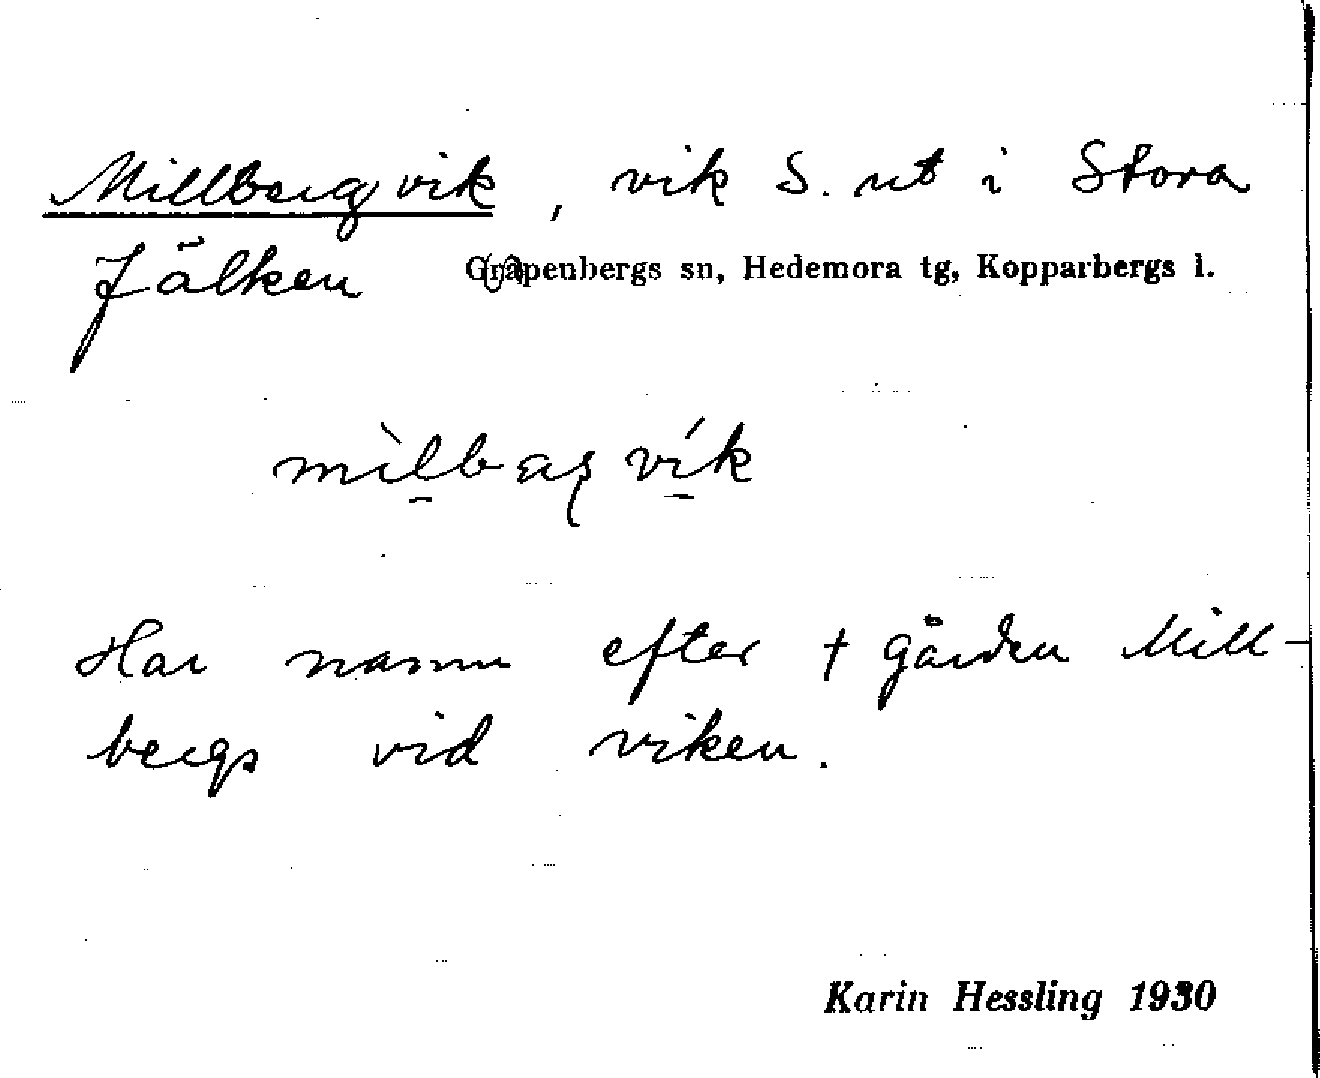 Millbergvik, vik S. ut i Stora
Jälken Grapenbergs sn, Hedemora tg, Kopparbergs l.
mìlbaʒvík
Har namn efter † gården Mill-
bergs vid viken.
Karin Hessling 1930